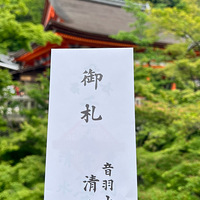 御札
音羽山
清